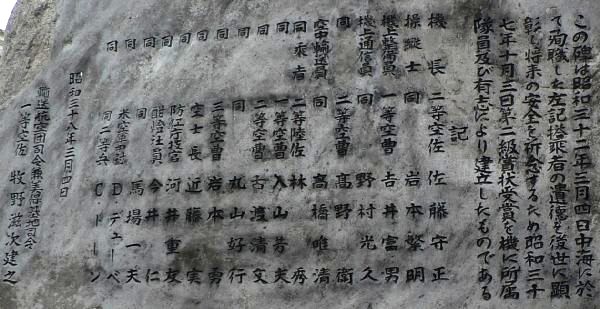 この碑は昭和三十二年三月四日中海に於
て殉職した左記搭乗者の遺徳を後世に顕
彰し将来の安全を祈念するため昭和三十
七年十月三日第二級賞状受賞を機に所属
隊員及び有志により建立したものである
記
機長 二等空佐 佐藤守正
操縦士 同 岩本繁明
機上整備員 一等空曹 吉井富男
機上通信員 同 野村光久
同 二等空曹 高野衛
空中輸送員 同 高橋唯清
同乗者 二等陸佐 林秀
同 一等空曹 入山芳英
同 二等空曹 古渡清文
同 同 丸山好行
同 三等空曹 岩本勇
同 空士長 近藤実
同 防衛庁技官 河井重友
同 酣燈社員 今井仁
同 同 馬場一夫
同 米空軍中尉 D・デューベ
同 同二等兵 C・ドーン
昭和三十八年三月四日
輸送航空団司令兼美保基地司令
一等空佐 牧野滋次建之